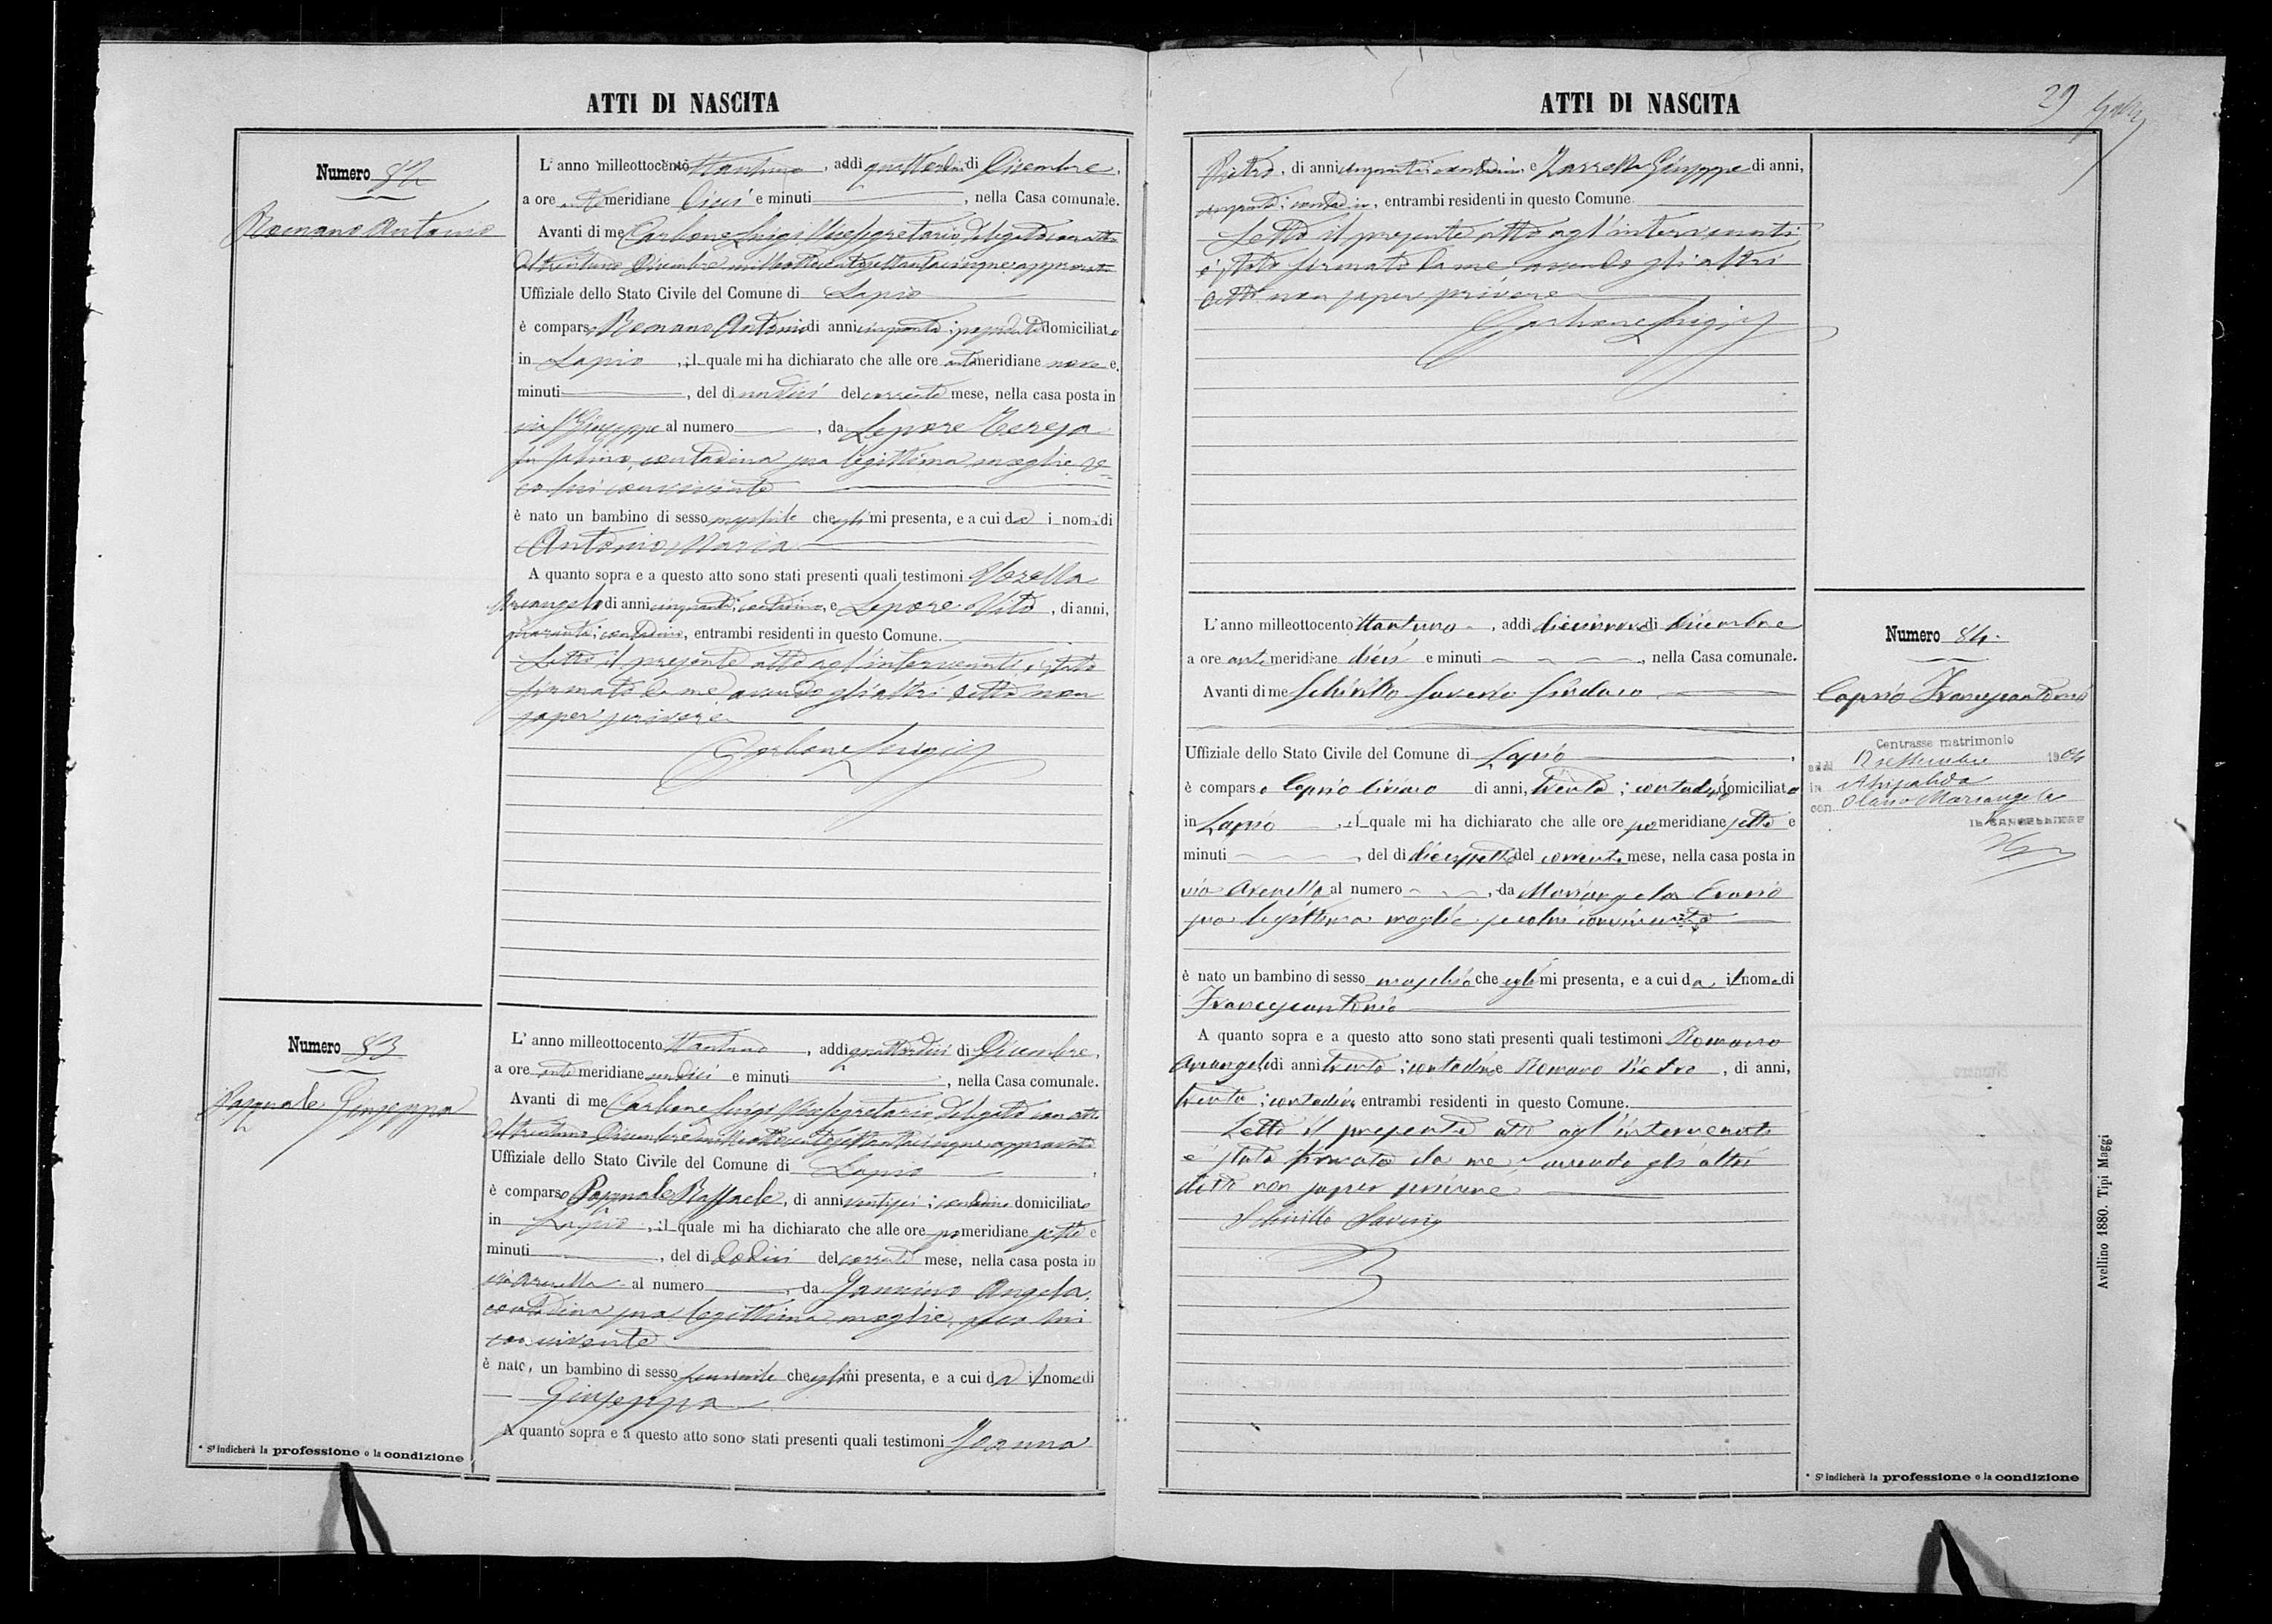 ATTI DI NASCITA
Numero 82
Romano Antonio
L'anno milleottocento ottantuno, addi quattordici di Dicembre,
a ore ante meridiane dieci e minuti, nella Casa comunale.
Avanti di me Carbone Luigi Vicesegretario delegato con atto
del trentuno Dicembre milleottocentosettantacinque approvato
Uffiziale dello Stato Civile del Comune di Lapio
è comparso Romano Antonio di anni cinquanta; domiciliato
in Lapio, il quale mi ha dichiarato che alle ore antimeridiane nove e
minuti, del dì undici del corrente mese, nella casa posta in
via S. Giuseppe al numero, da Lepore Teresa
fu Sabino, contadina sua legittima moglie, se-
co lui convivente
è nato un bambino di sesso maschile che egli mi presenta, e a cui dà i nomi di
Antonio Maria
A quanto sopra e a questo atto sono stati presenti quali testimoni
Arcangelo di anni cinquanta; contadino, e Lepore Vito, di anni,
quaranta; contadino, entrambi residenti in questo Comune.
Letto il presente atto agl'intervenuti, è stato
firmato da me, avendo gli altri detto non
saper scrivere
Carbone Luigi
Numero 83
Pasquale Giuseppa
L'anno milleottocento ottantuno, addi quattordici di Dicembre,
a ore ante meridiane undici e minuti, nella Casa comunale.
Avanti di me Carbone Luigi Vicesegretario delegato con atto
del trentuno Dicembre milleottocentosettantacinque approvato
Uffiziale dello Stato Civile del Comune di Lapio,
è comparso Pasquale Raffaele, di anni ventisei; contadino domiciliato
in Lapio, il quale mi ha dichiarato che alle ore pomeridiane sette e
minuti, del dì dodici del corrente mese, nella casa posta in
via Arenella al numero, da Iannino Angela,
contadina sua legittima moglie, seco lui
convivente
è nato, un bambino di sesso femminile che egli mi presenta, e a cui dà il nome di
Giuseppa
A quanto sopra e a questo atto sono stati presenti quali testimoni
* Si indicherà la professione o la condizione
ATTI DI NASCITA
29
Pietro, di anni cinquanta; contadino, e Zarrella Giuseppe di anni,
cinquanta; contadino, entrambi residenti in questo Comune.
Letto il presente atto agl'intervenuti
è stato firmato da me, avendo gli altri
detto non saper scrivere
Carbone Luigi
Numero 84.
Caprio Francescantonio
Contrasse matrimonio
addi 12 settembre 1904
in Atripalda
con Mariangela
IL CANCELLIERE
L'anno milleottocento ottantuno, addi diecinove di dicembre
a ore antimeridiane dieci e minuti, nella Casa comunale.
Avanti di me Schirillo Saverio Sindaco
Uffiziale dello Stato Civile del Comune di Lapio,
è comparso Caprio Ciriaco di anni, trenta; contadino, domiciliato
in Lapio, il quale mi ha dichiarato che alle ore pomeridiane sette e
minuti, del dì diecissette del corrente mese, nella casa posta in
via Arenella al numero, da Mariangela
sua legittima moglie seco lui convivente
è nato un bambino di sesso maschio che egli mi presenta, e a cui dà il nome di
Francescantonio
A quanto sopra e a questo atto sono stati presenti quali testimoni Romano
Arcangelo di anni trenta; contadino e Romano Pietro, di anni,
trenta; contadino entrambi residenti in questo Comune.
Letto il presente atto agl'intervenuti
è stato firmato da me avendo gli altri
detto non saper scrivere
Schirillo Saverio
* Si indicherà la professione o la condizione
Avellino 1880. Tipi Maggi